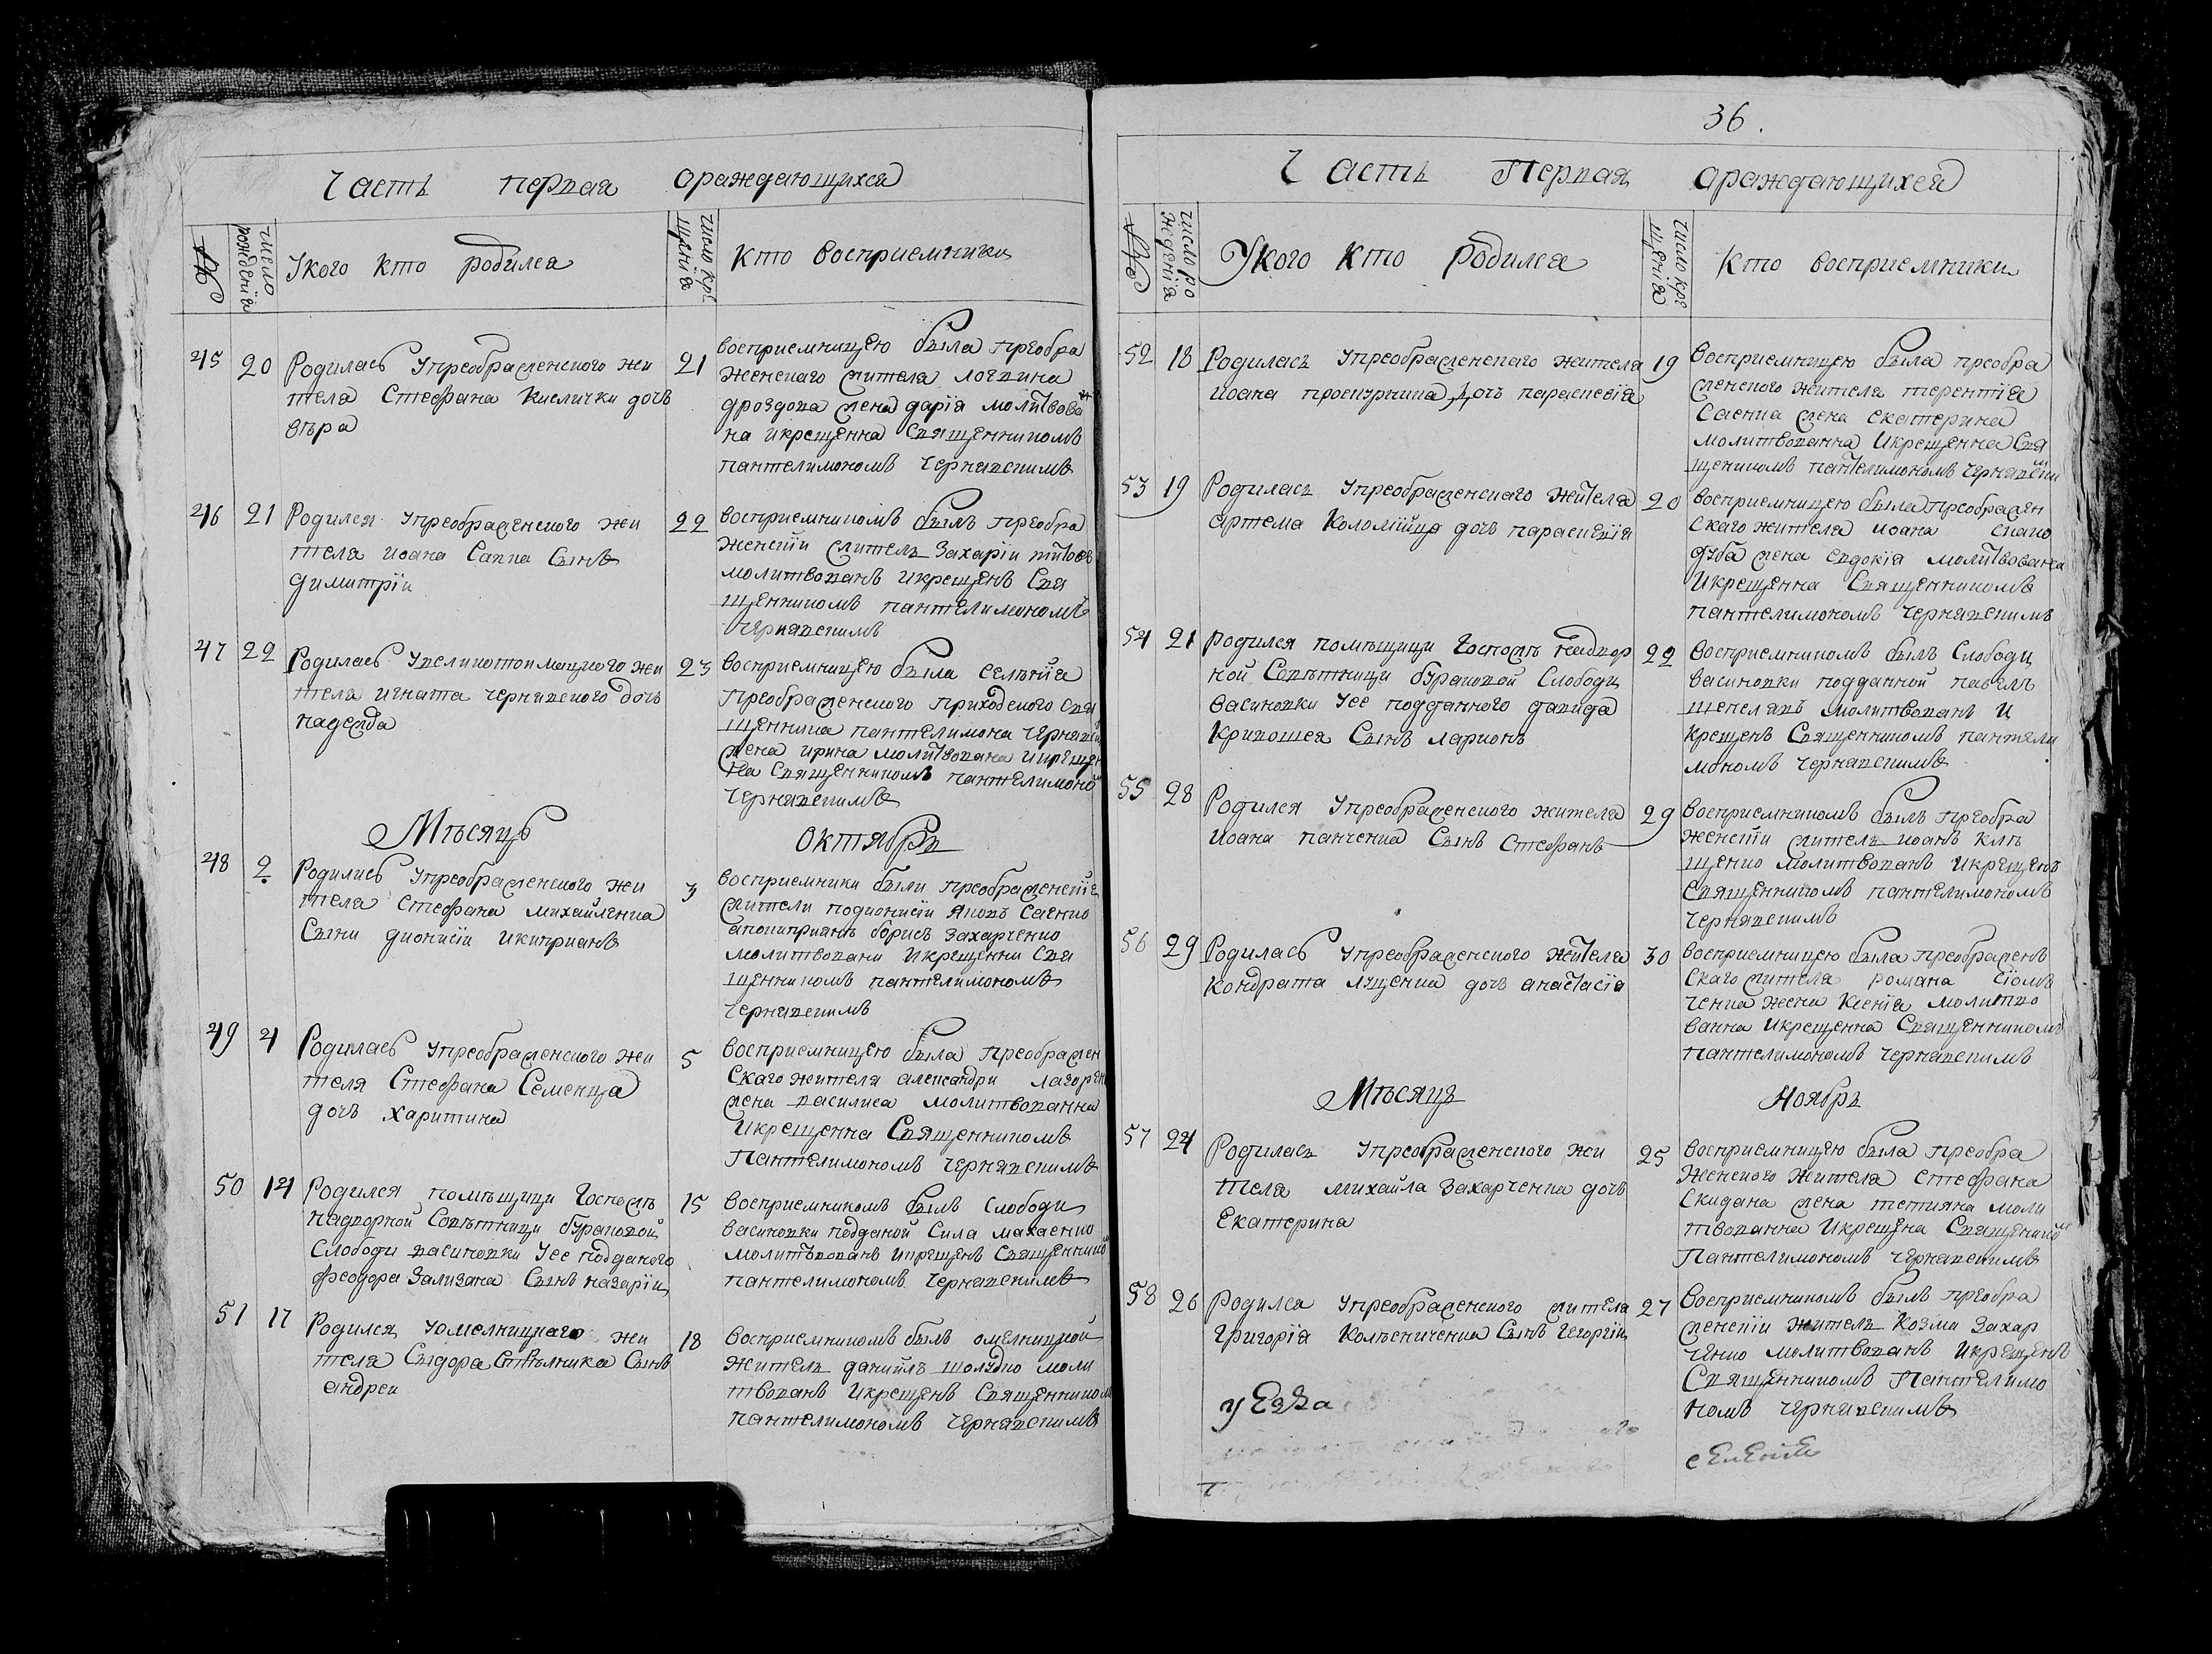 Часть первая ораждающихся
№
число рождения
У кого кто родился
число кре щения
кто восприемники
45 20
Родилась упреображенского жи
теля Стефана Кислички дочь
вѣра
21
восприемницею была преобра
женскаго жителя логвина
дроздова жена дарія молитвова
на икрещенна Священникомъ
пантелимономъ Чернявскимъ
46 21
Родился упреображенского жи
теля иоана Саппа Сынъ
димитріи
22
восприемникомъ былъ преобра
женскіи житель Захаріи
молитвованъ икрещенъ Свя
щенникомъ пантелимономъ
Чернявскимъ
47 22
Родилась увеликотопилицкого жи
теля игната чернявского дочь
надежда
23
восприемницею была селѣнія
преображенского приходского Свя
щенника пантелимона Чернявск
жена ирина молитвована икреще
на Священникомъ пантелимоно
Чернявскимъ
Мѣсяцъ Октябрь
48 2
Родились упреображенского жи
теля Стефана михайленка
Сыни дионисіи икиприанъ
3
восприемники были преображенскіе
жители подионисіи яковъ Саенко
апокиприянъ борисъ Захарченко
молитвовани икрещенни Свя
щенникомъ пантелимономъ
Чернявскимъ
49 4
Родилась упреображенского жи
теля Стефана Семенца
дочь харитина
5
восприемницею была преображен
скаго жителя александри
жена василиса молитвованна
икрещенна Священникомъ
Пантелимономъ Чернявскимъ
50 14
Родился помѣщици Госпожѣ
надворной Совѣтници бураковой
Слободи васиновки Уее подданого
феодора Зализана Сынъ назаріи
15
восприемникомъ былъ Слободи
васиновки подданой Сила махаенко
молитвованъ икрещенъ Священнико
пантелимономъ Чернявскимъ
51 17
Родился уомелницкаго жи
теля Сидора Сынъ
андреи
18
восприемникомъ былъ омелницкой
житель даниілъ шолудко моли
твованъ икрещенъ Священником
пантелимономъ Чернявскимъ
36.
Часть Первая ораждающихся
№
число ро жденія
У кого кто родился
число кре щенія
Кто восприемники
52 18
Родилась упреображенскаго жителя
иоана проскурника дочь параскевія
19
восприемницею была преобра
женского жителя терентія
Саенка жена екатерина
молитвованна икрещенна Свя
щеникомъ пантелимономъ Чернявски
53 19
Родилась упреображенскаго жителя
артема Коломійца дочь параскевія
20
восприемницею была преображен
скаго жителя иоана скако
дуба жена евдокія молитвована
икрещенна Священникомъ
пантелимономъ Чернявскимъ
54 21
родился помѣщици Госпожѣ надвор
ной Совѣтници бураковой Слободи
васиновки Уее подданного давида
Кривошея Сынъ ларионъ
22
восприемникомъ былъ Слободи
васиновки подданной павелъ
молитвованъ и
крещенъ Священникомъ пантели
мономъ Чернявскимъ
55 28
Родился упреображенского жителя
иоана панченка Сынъ Стефанъ
29
восприемникомъ былъ преобра
женскіи житель иоанъ клѣ
щенко молитвованъ икрещенъ
Священникомъ пантелимономъ
Чернявскимъ
56 29
Родилась упреображенского жителя
Кондрата лященка дочь анастасія
30
восприемницею была преображенъ
скаго жителя романа
ченка жена Ксенія молитво
ванна икрещенна Священникомъ
пантелимономъ Чернявскимъ
Мѣсяцъ Ноябрь
57 24
Родилась упреображенского жи
теля михайла Захарченка дочь
Екатерина
25
восприемницею была преобра
женского жителя стефана
Скидана жена тетияна моли
твованна икрещена Священико
Пантелимономъ Чернявскимъ
58 26
Родился упреображенского жителя
григорія Колѣсниченка Сынъ Георгіи
27
восприемникомъ былъ преобра
женскіи житель Козма Захар
ченко молитвованъ икрещенъ
Священникомъ Пантелимо
номъ Чернявскимъ
уезда